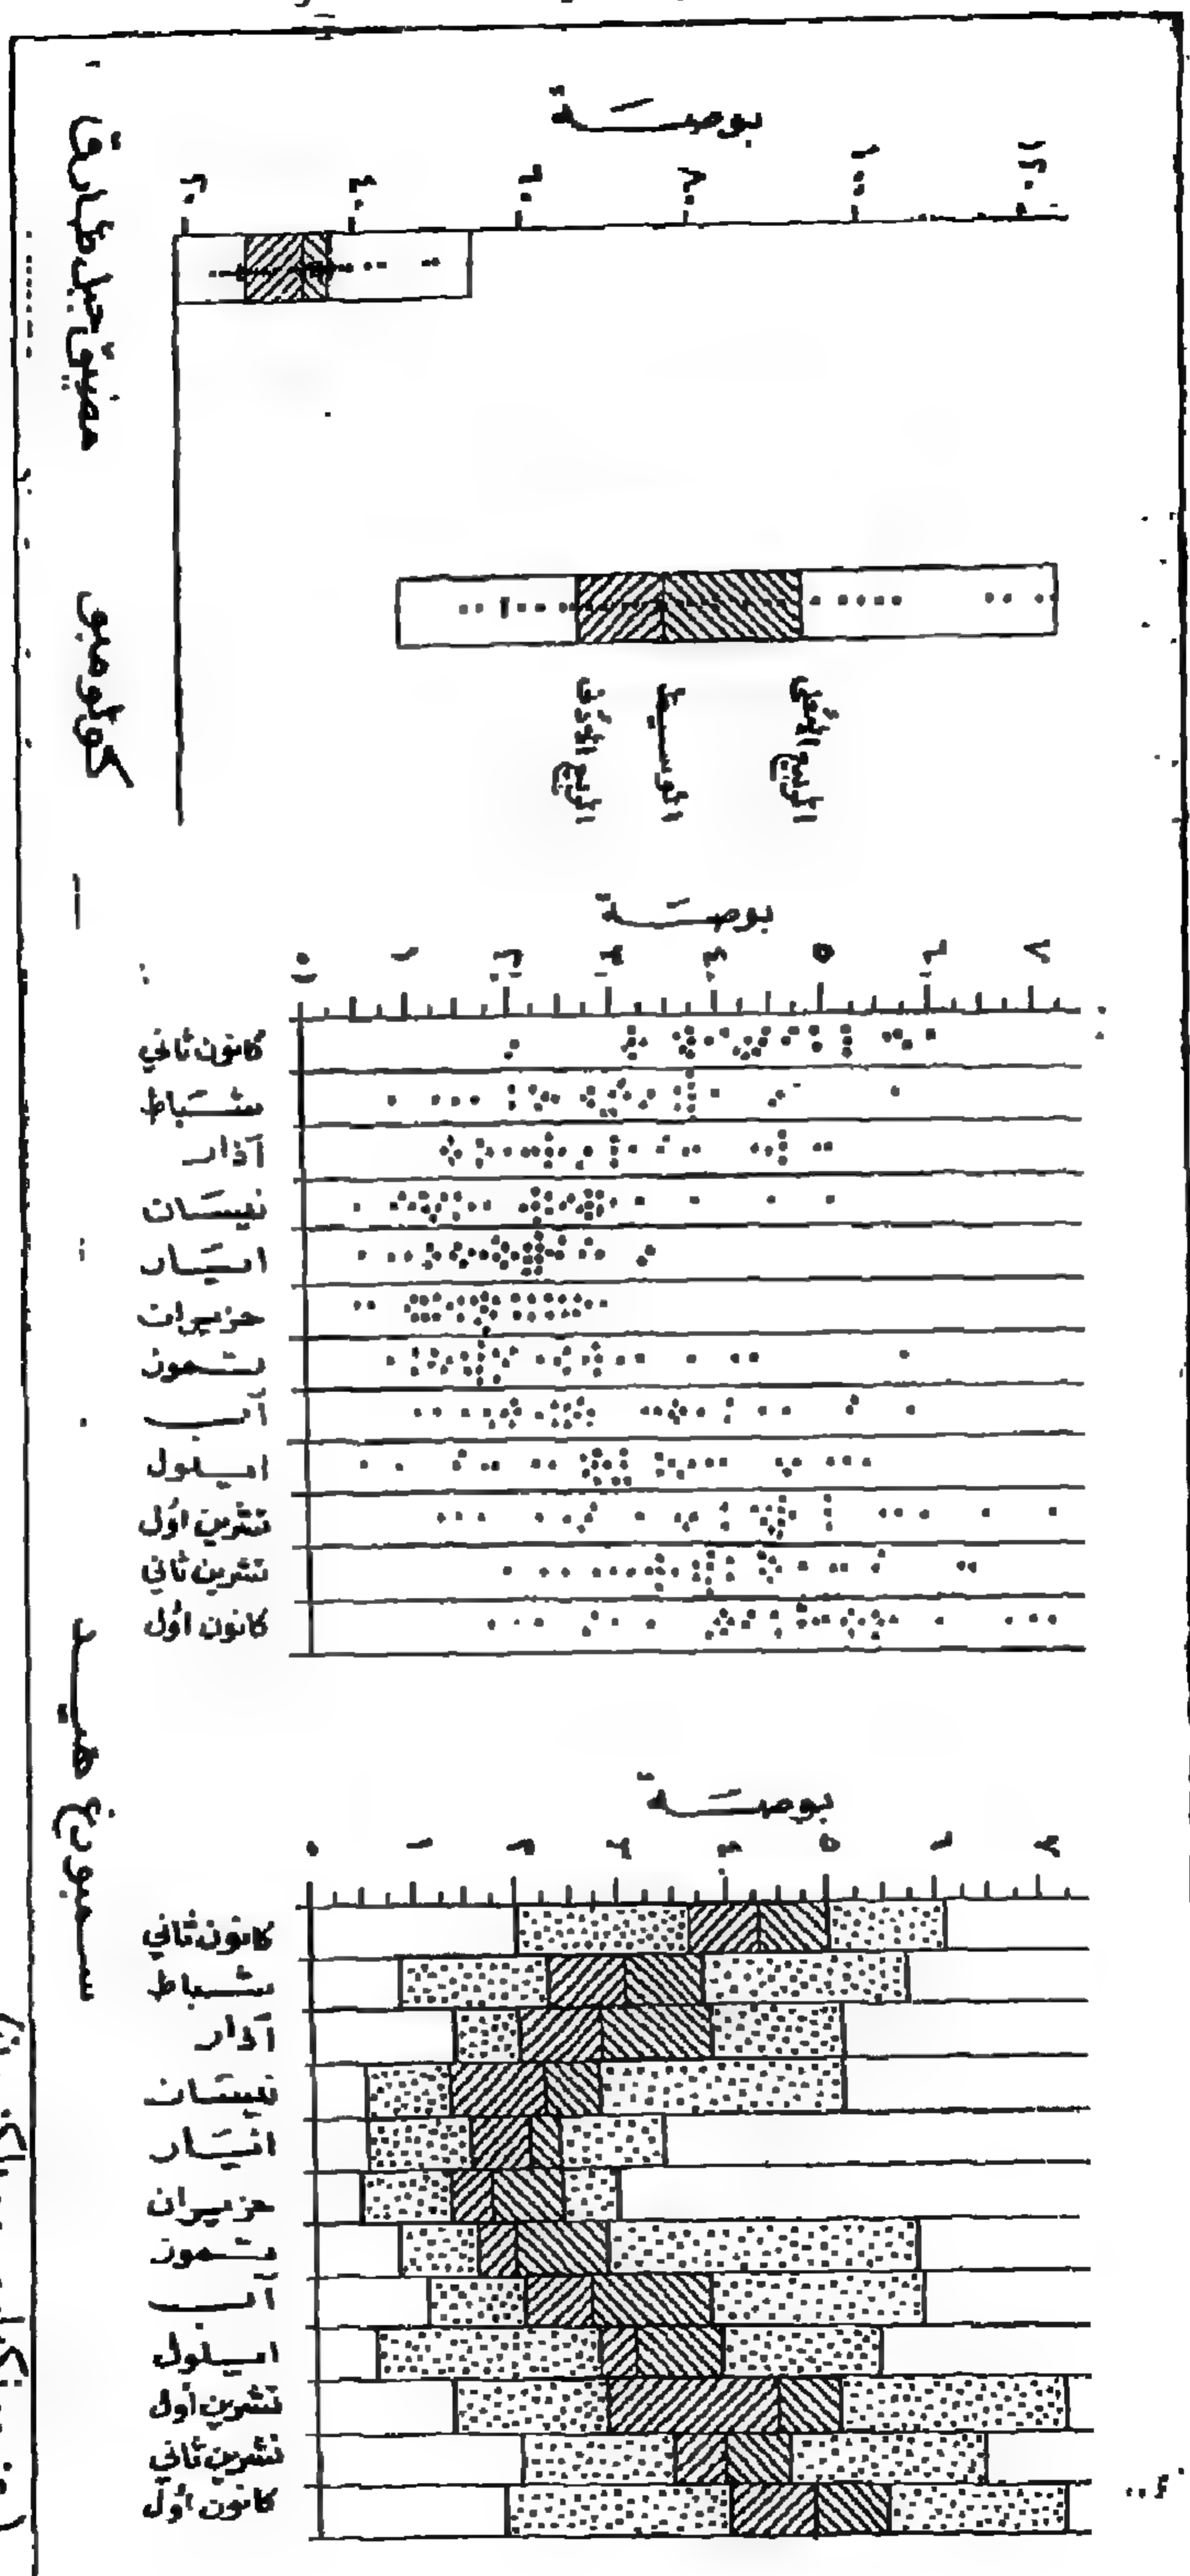 بوصة
٢٠ ٤٠ ٦٠ ٨٠ ١٠٠ ١٢٠
مضيق جبل طارق
كولومبو
الربيع الأدنى
الوسيط
الربيع الأعلى
بوصة
٠ ١ ٢ ٣ ٤ ٥ ٦ ٧
كانون ثاني
شباط
آذار
نيسان
ايار
حزيران
تموز
آب
ايلول
تشرين اول
تشرين ثاني
كانون اول
سمبورغ هيد
بوصة
٠ ١ ٢ ٣ ٤ ٥ ٦ ٧
كانون ثاني
شباط
آذار
نيسان
ايار
حزيران
تموز
آب
ايلول
تشرين أول
تشرين ثاني
كانون اول